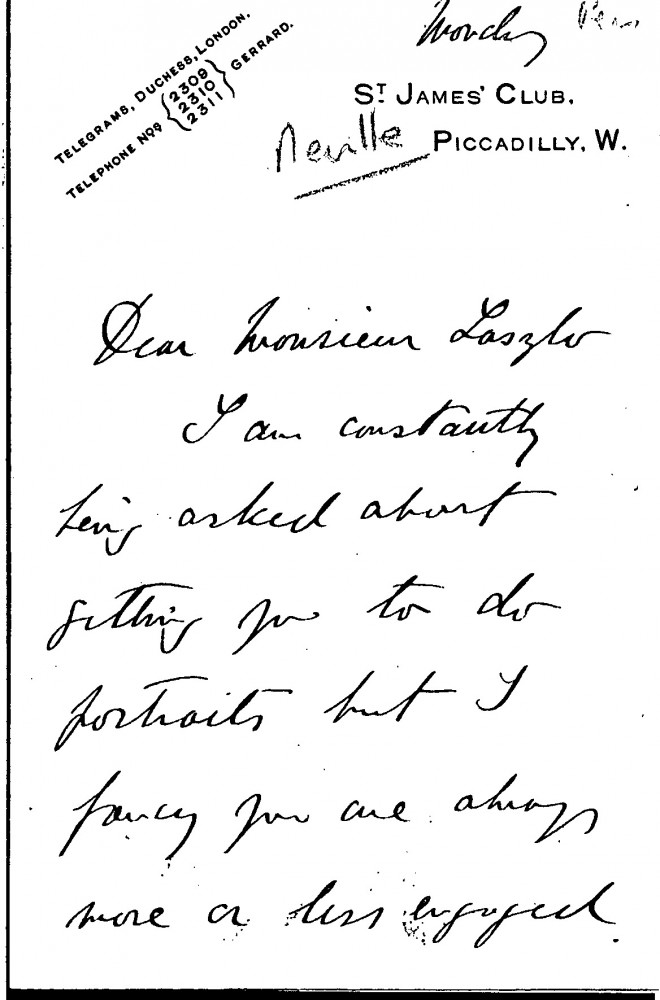 TELEGRAMS, DUCHESS, LONDON.
TELEPHONE Nos { 2309 2310 2311 } GERRARD.
Monday
ST JAMES' CLUB,
PICCADILLY, W.
Neville
Dear Monsieur Laszlo
I am constantly
being asked about
getting you to do
portraits but I
fancy you are always
more or less engaged.